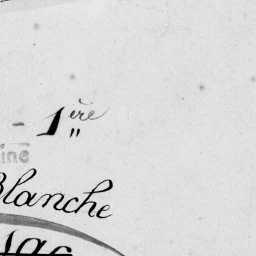 - 1ère
ine
Blanche